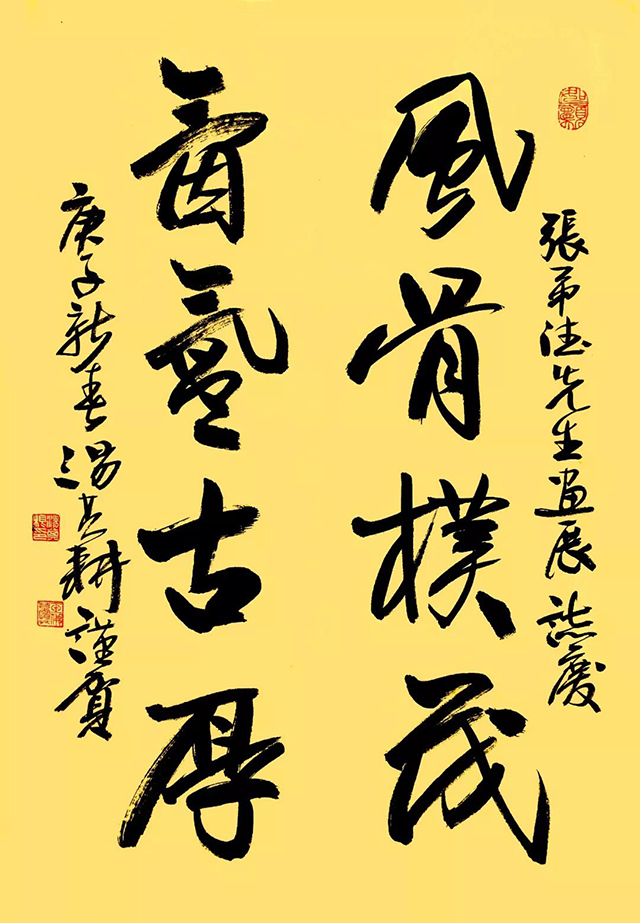 張德先生畫展誌慶
風骨樸茂
氤氳古厚
庚子新春湯其耕謹賀